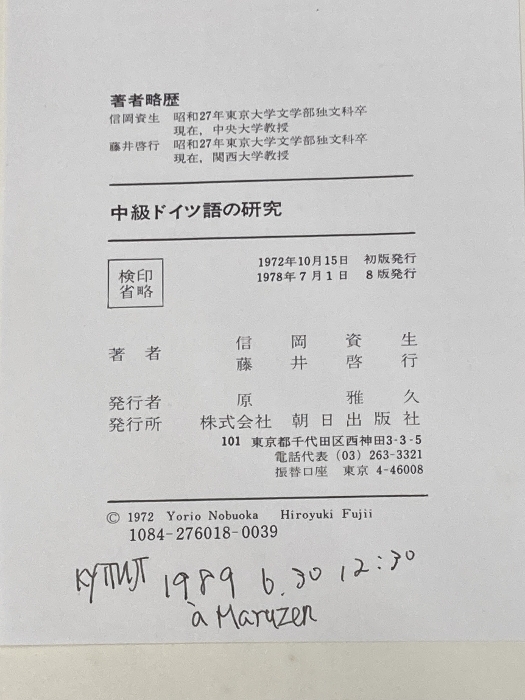 著者略歴
信岡資生 昭和27年東京大学文学部独文科卒
現在，中央大学教授
藤井啓行 昭和27年東京大学文学部独文科卒
現在，関西大学教授
中級ドイツ語の研究
検印
省略
1972年10月15日 初版発行
1978年7月1日 8版発行
著者 信岡資生
藤井啓行
発行者 原雅久
発行所 株式会社 朝日出版社
101 東京都千代田区西神田3-3-5
電話代表 (03) 263-3321
振替口座 東京 4-46008
© 1972 Yorio Nobuoka Hiroyuki Fujii
1084-276018-0039
1989 6.30 12:30
à Maruzen